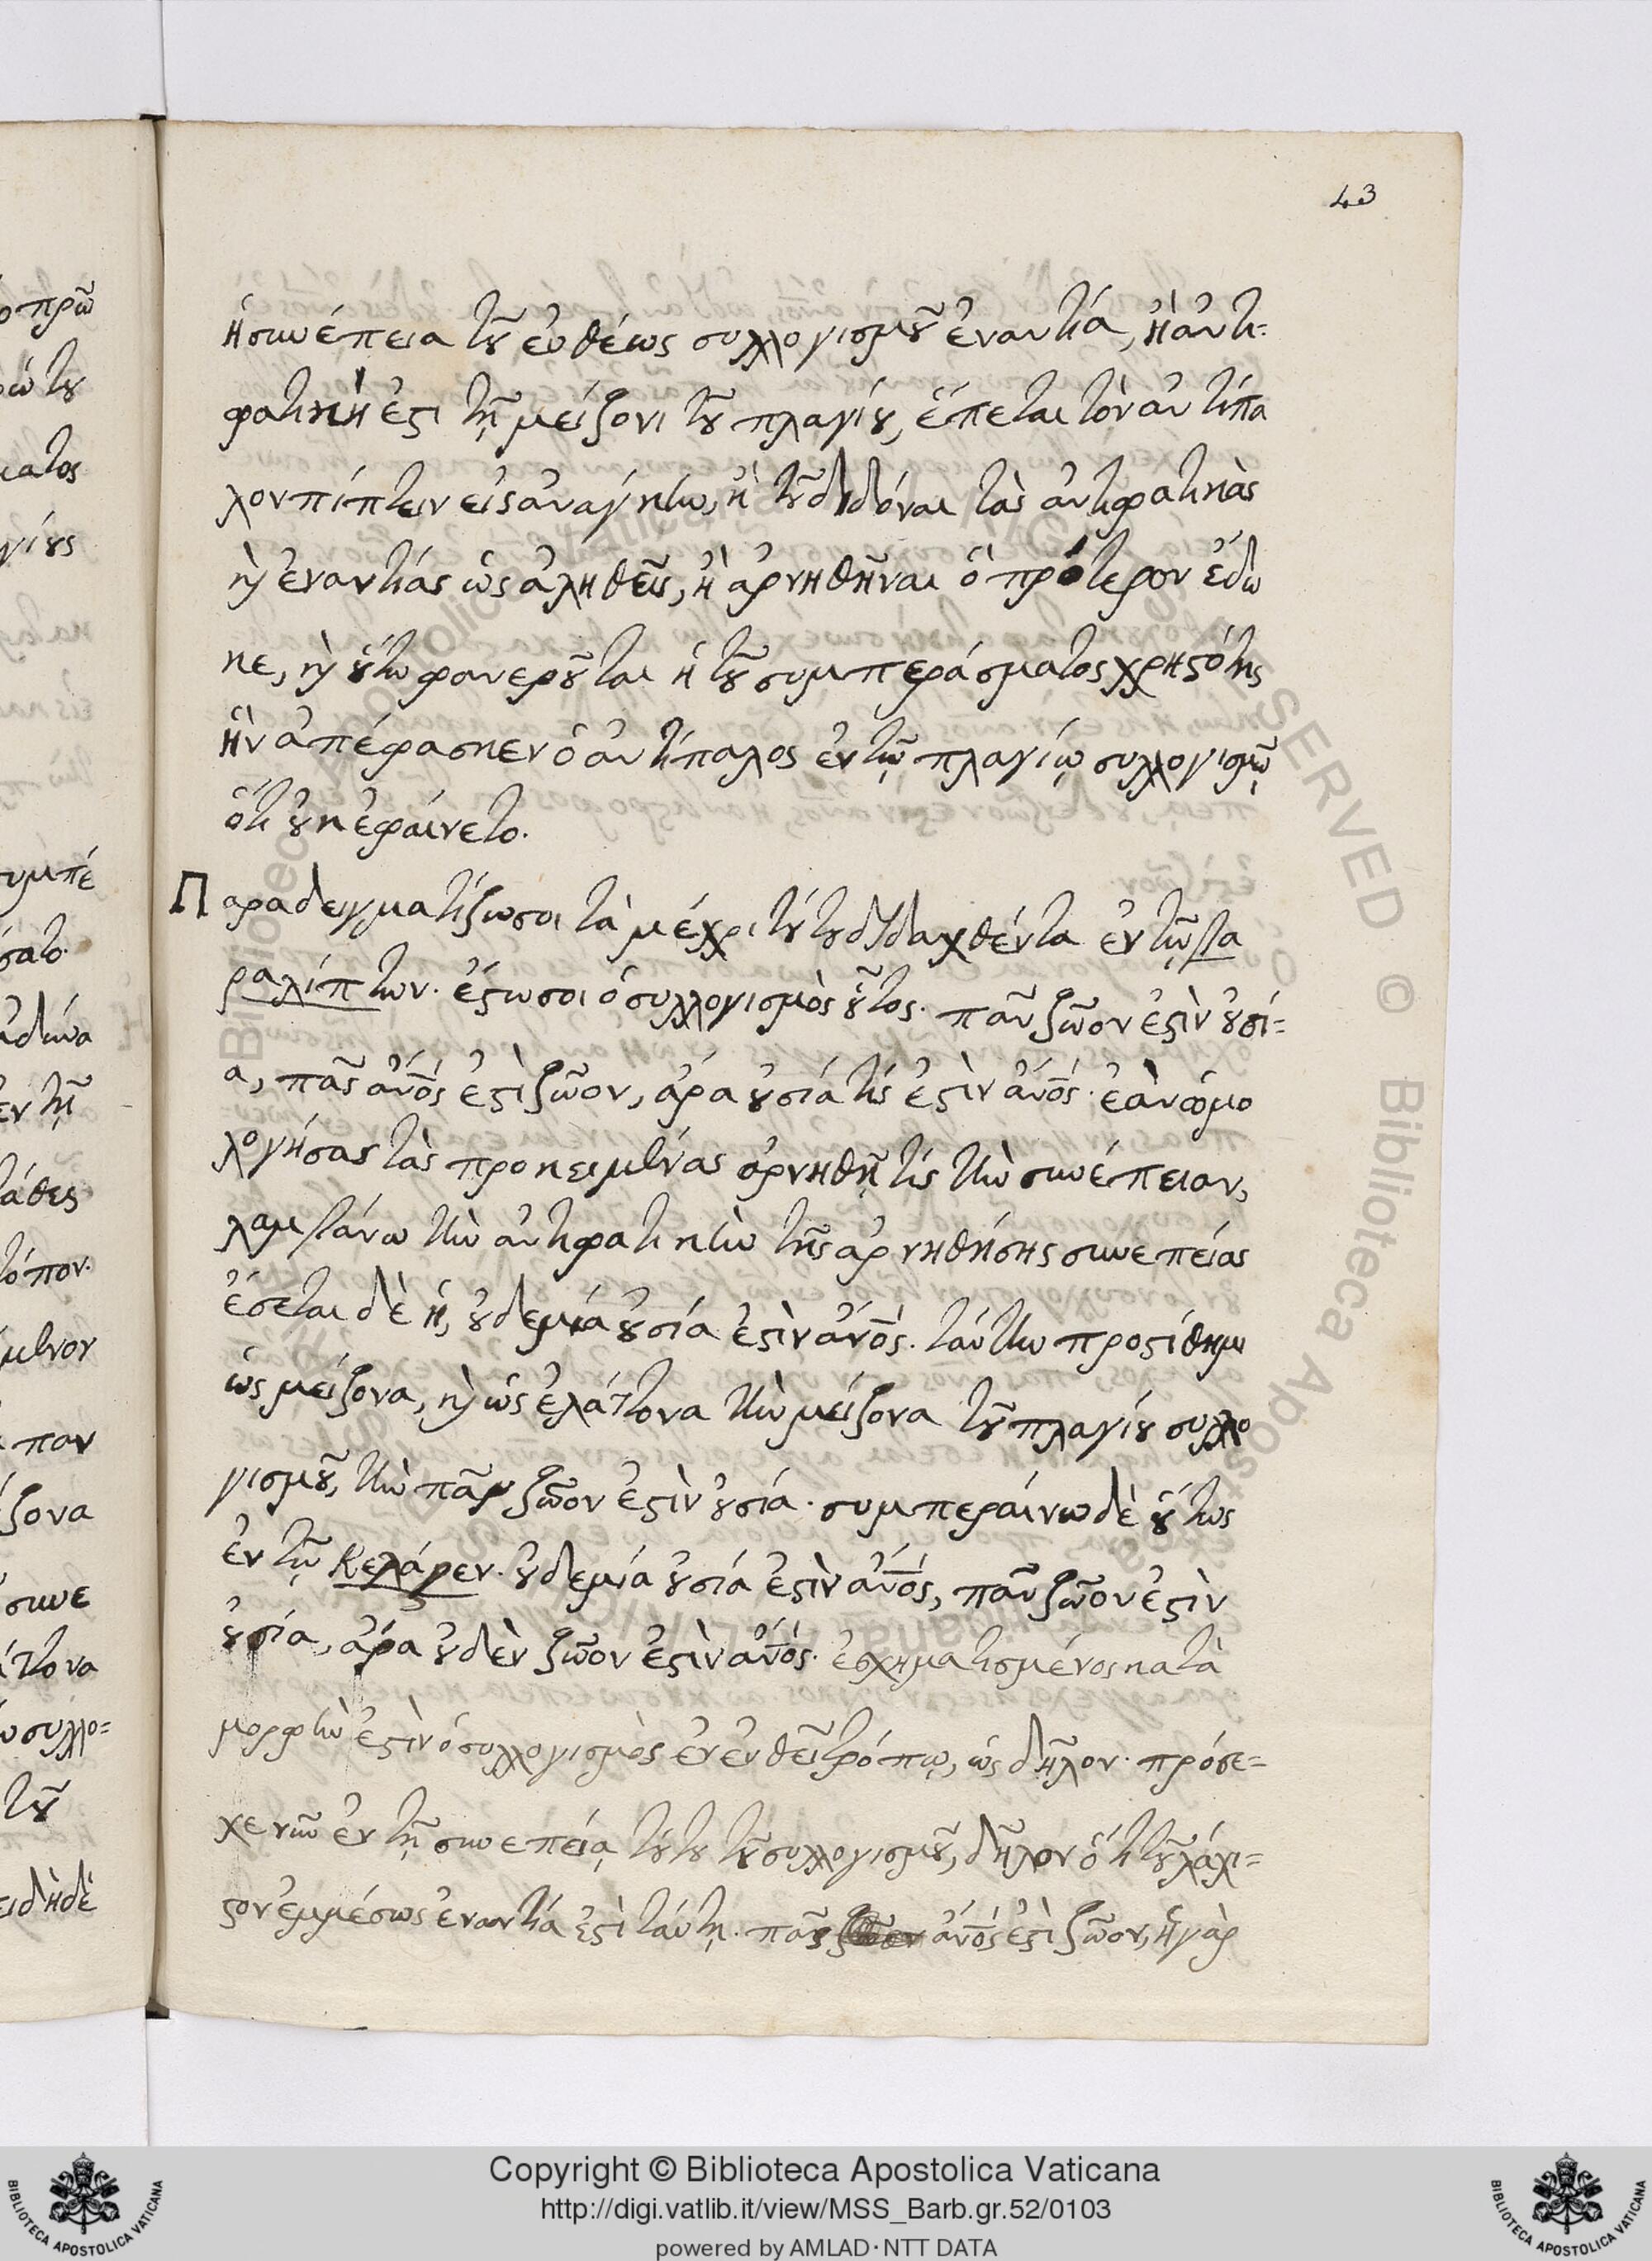 43
ἡ συνέπεια τοῦ εὐθέως συλλογισμοῦ ἐναντία, ἢ ἀντι-
φατικὴ ἐστι τῇ μείζονι τοῦ πλαγίου, ἕπεται τὸν ἀντίπα
λον πίπτειν εἰς ἀνάγκην, ἢ τοῦ διδόναι τὰς ἀντιφατικὰς
καὶ ἐναντίας ὡς ἀληθεῖς, ἢ ἀρνηθῆναι ὃ πρότερον ἔδω
κε, καὶ οὕτω φανεροῦται ἡ τοῦ συμπεράσματος χρηστότης
ἣν ἀπέφασκεν ὁ ἀντίπαλος ἐν τῷ πλαγίῳ συλλογισμῷ
ὅτι οὐκ ἐφαίνετο.
Παραδειγματίζωσοι τὰ μέχρι τούτου διδαχθέντα ἐν τῷ βα
ραλίπτων. ἔστωσοι ὁ συλλογισμὸς οὗτος. πᾶν ζῶον ἐστὶν οὐσί-
α, πᾶς ἄνος ἐστὶ ζῶον, ἄρα οὐσία τίς ἐστὶν ἄνος. ἐὰν ὁμο
λογήσας τὰς προκειμένας ἀρνηθῇ τίς τὴν συνέπειαν,
λαμβάνω τὴν ἀντιφατικὴν τῆς ἀρνηθήσης συνεπείας
ἔσεται δὲ ἡ, οὐδεμία οὐσία ἐστὶν ἄνος. ταύτην προστίθημι
ὡς μείζονα, καὶ ὡς ἐλάττονα τὴν μείζονα τοῦ πλαγίου συλλο
γισμοῦ, τὴν πᾶν ζῶον ἐστὶν οὐσία. συμπεράινω δὲ οὕτως
ἐν τῷ Κελάρεν. οὐδεμία οὐσία ἐστὶν ἄνος, πᾶν ζῶον ἐστὶν
οὐσία, ἄρα οὐδὲν ζῶον ἐστὶν ἄνος. ἐσχηματισμένος κατὰ
μορφὴν ἐστὶν ὁ συλλογισμὸς ἐν εὐθεῖ τρόπῳ, ὡς δῆλον. πρόσε-
χε νῶ ἐν τῇ συνεπείᾳ τούτου τοῦ συλλογισμοῦ, δῆλον ὅτι τοὐλάχι-
στον ἐμμέσως ἐναντία ἐστὶ ταύτῃ. πᾶς ἄνος ἐστὶ ζῶον, ἡ γὰρ
Copyright © Biblioteca Apostolica Vaticana
http://digi.vatlib.it/view/MSS_Barb.gr.52/0103
powered by AMLAD·NTT DATA